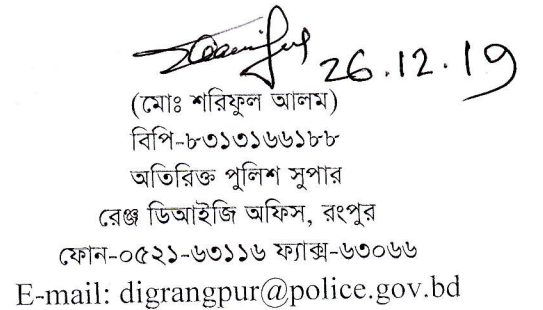 26.12.19
(মোঃ শরিফুল আলম)
বিপি-৮৩১৩১৬৬১৮৮
অতিরিক্ত পুলিশ সুপার
রেঞ্জ ডিআইজি অফিস, রংপুর
ফোন-০৫২১-৬৩১১৬ ফ্যাক্স-৬৩০৬৬
E-mail: digrangpur@police.gov.bd